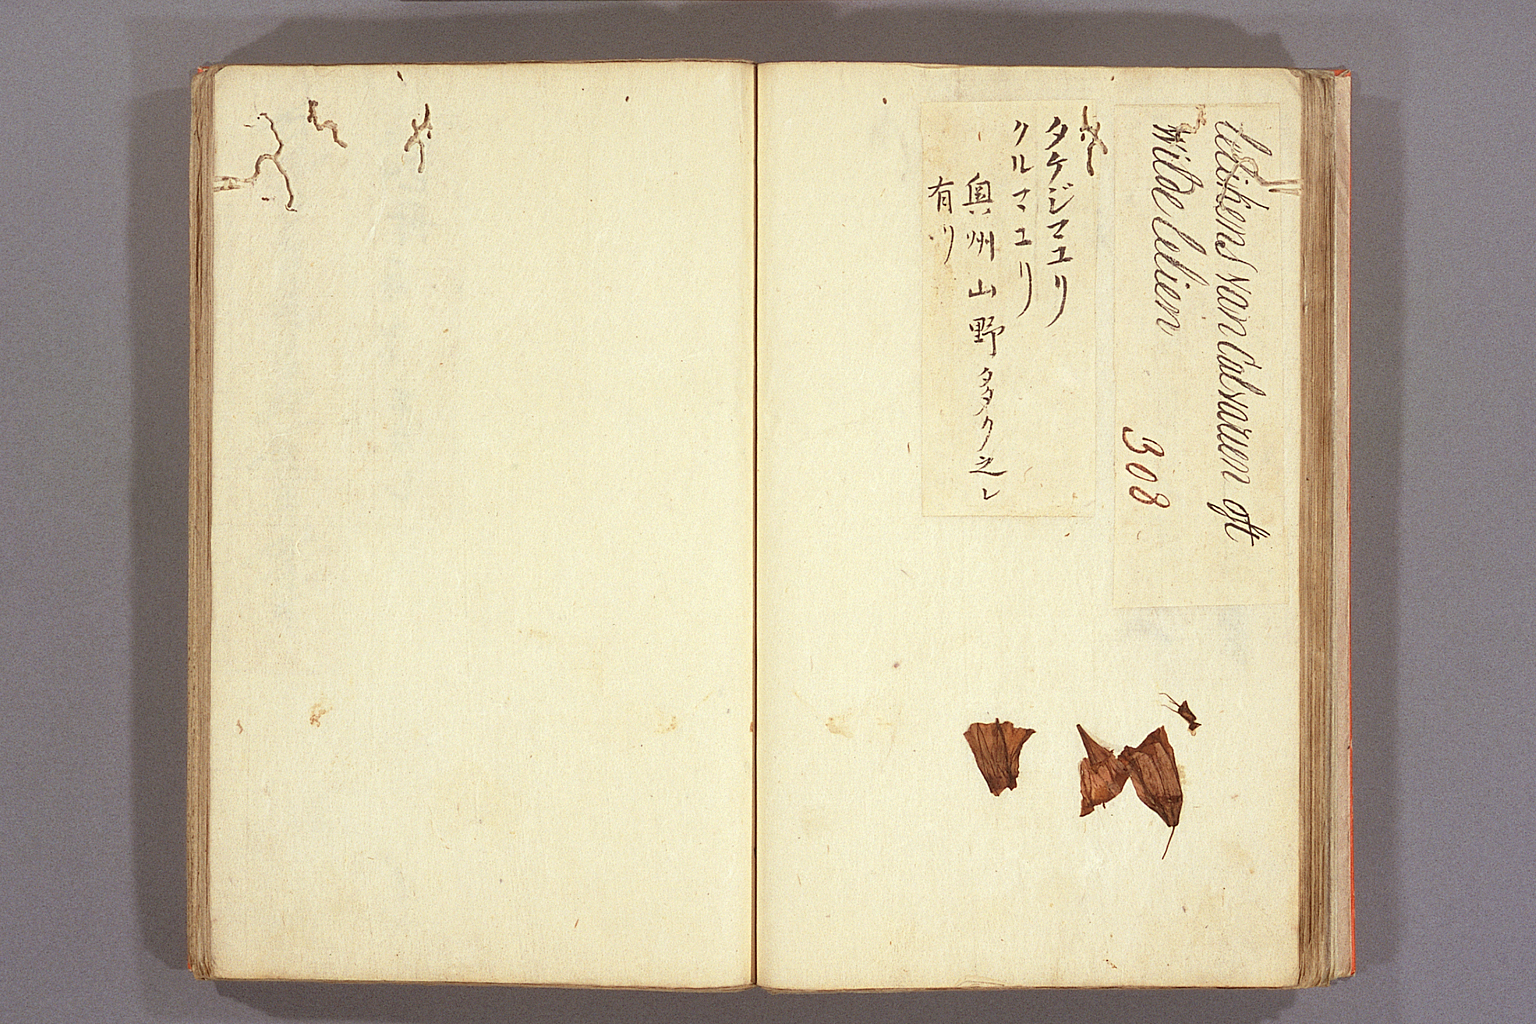 lelikens van Calvaruen oft
Wilde lelien
308
タケジマユリ
クルマユリ
奥州山野多ク之レ
有リ